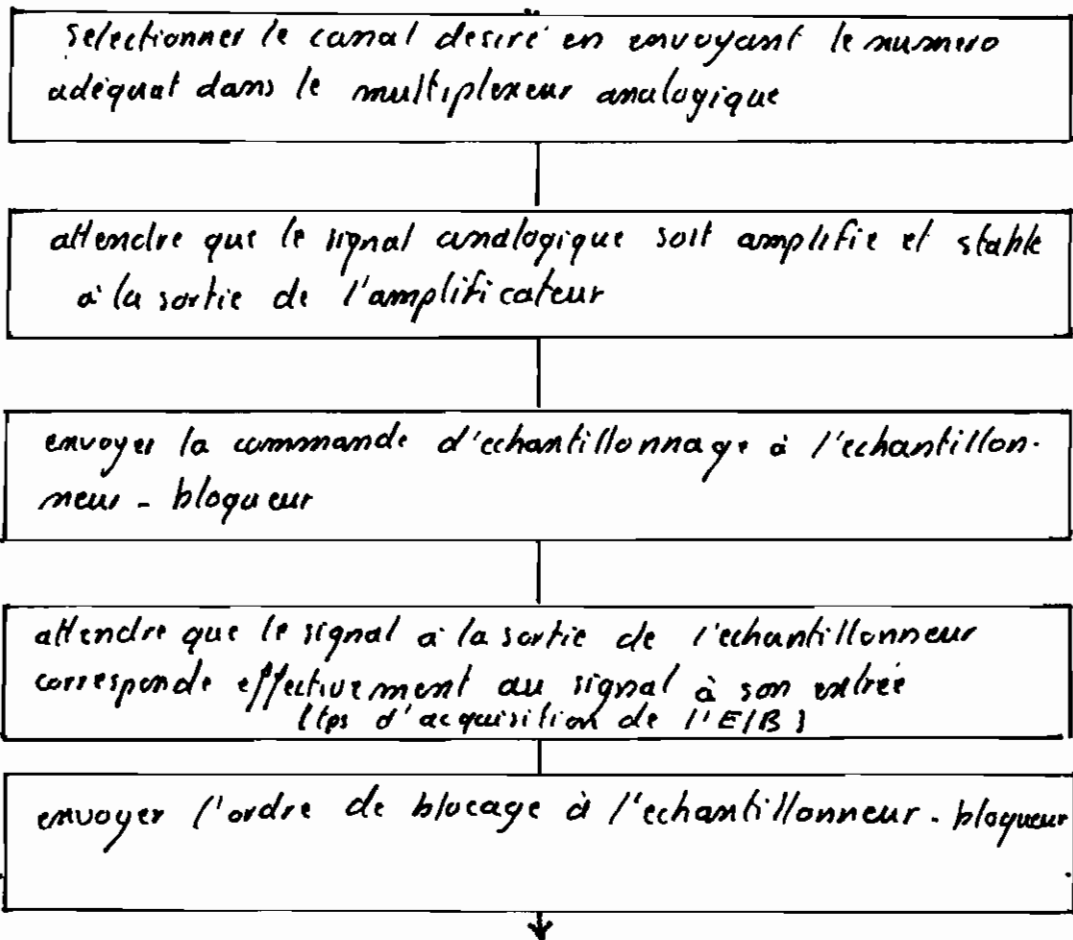 selectionner le canal desiré en envoyant le numero
adéquat dans le multiplexeur analogique
attendre que le signal analogique soit amplifie et stable
à la sortie de l'amplificateur
envoyer la commande d'echantillonnage à l'echantillon-
neur - bloqueur
attendre que le signal à la sortie de l'echantillonneur
corresponde effectivement au signal à son entrée
(tps d'acquisition de l'E/B)
envoyer l'ordre de blocage à l'echantillonneur - bloqueur